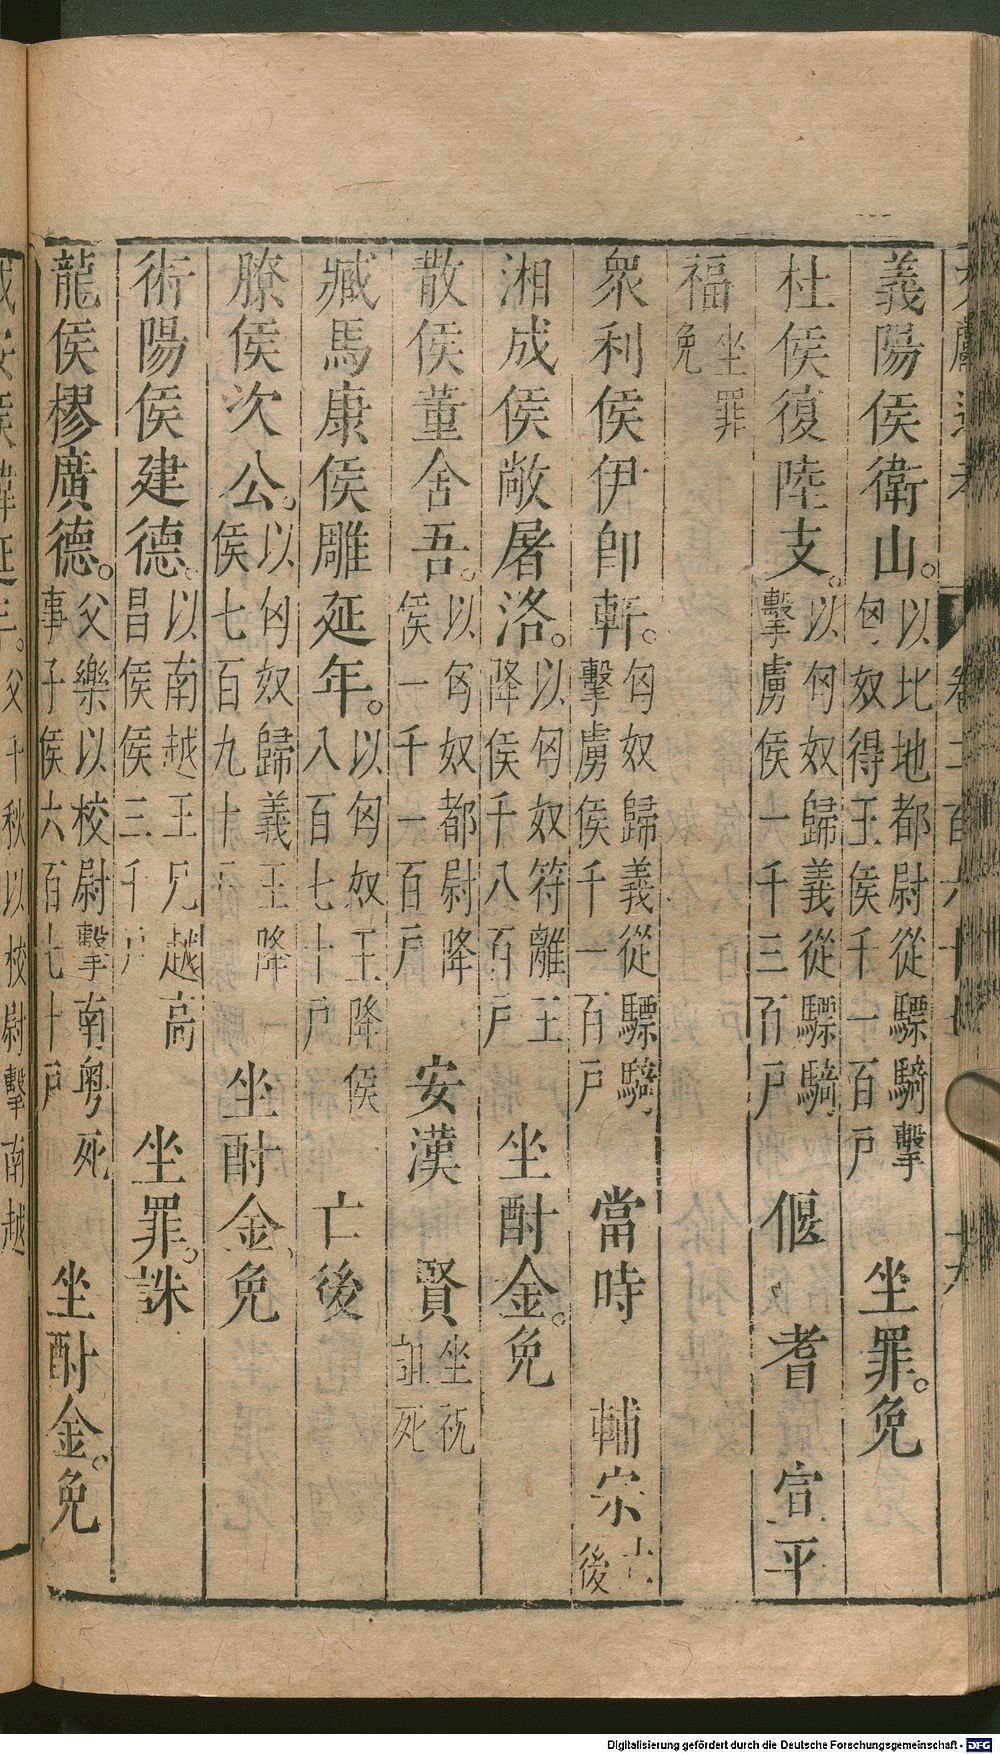 義陽侯衛山。以北地都尉從驃騎擊匈奴得王侯千一百戶 坐罪。免
杜侯復陸支。以匈奴歸義從驃騎擊虜侯一千三百戶 偃 耆 宣平
福坐罪免
衆利侯伊即軒。匈奴歸義從驃騎擊虜侯千一百戶 當時 輔宗 後
湘成侯敞屠洛。以匈奴符離王降侯千八百戶 坐酎金。免
散侯董舍吾。以匈奴都尉降侯一千一百戶 安漢 賢坐祝詛死
臧馬康侯雕延年。以匈奴王降侯八百七十戶 亡後
膫侯次公。以匈奴歸義王降侯七百九十戶 坐酎金、免
術陽侯建德。以南越王兄越高昌侯侯三千戶 坐罪。誅
龍侯摎廣德。父樂以校尉擊南粤死事子侯六百七十戶 坐酎金。免
父千秋以校尉擊南越
Digitalisierung gefördert durch die Deutsche Forschungsgemeinschaft - DFG